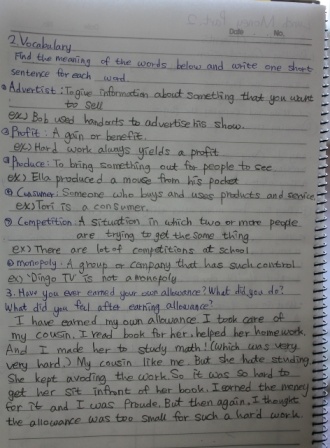 Date No.
2. Vocabulary
Find the meaning of the words below and write one short
sentence for each word.
① Advertist : To give information about something that you want
to sell
ex) Bob used handarts to advertise his show.
② Profit : A gain or benefit.
ex) Hard work always yields a profit
③ Produce : To bring something out for people to see
ex) Ella produced a mouse from his pocket
④ Cusumer : Someone who buys and uses products and service
ex) Tori is a consumer.
⑤ Competition : A situation in which two or more people
are trying to get the same thing
ex) There are lot of competitions at school
⑥ monopoly : A group or company that has such control
ex) "Dingo TV" is not a monopoly
3. Have you ever earned your own allowance? What did you do?
What did you feel after earning allowance?
I have earned my own allowance. I took care of
my cousin. I read book for her, helped her homework.
And I made her to study math! (Which was very
very hard.) My cousin like me. But she hate studing.
She kept avoding the work. So it was so hard to
get her sit infront of her book. I earned the money
for it and I was Proude. But then again, I thought
the allowance was too small for such a hard work.